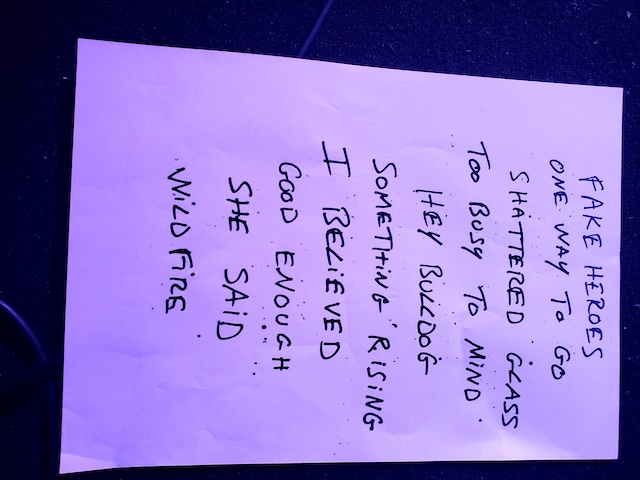 FAKE HEROES
ONE WAY TO GO
SHATTERED GLASS
TOO BUSY TO MIND
HEY BULLDOG
SOMETHING RISING
I BELIEVED
GOOD ENOUGH
SHE SAID
WILDFIRE